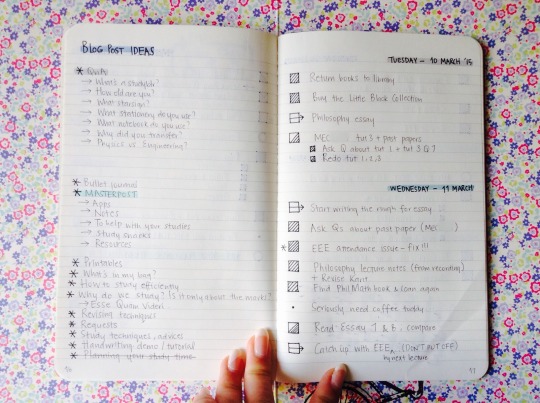 BLOG POST IDEAS
* Quote
→ What's a studyblr?
→ How old are you?
→ What star sign?
→ What stationery do you use?
→ What notebook do you use?
→ Why did you transfer?
→ Physics vs. Engineering?
* Bullet journal
* MASTERPOST
→ Apps
→ Notes
→ To help with your studies
→ Study snacks
→ Resources
* Printables
* What's in my bag?
* How to study efficiently
* Why do we study? Is it only about the marks?
→ Esse Quam Videri
* Revising techniques
* Requests
* Study techniques, advices
* Handwriting demo / tutorial
* Planning your study time
TUESDAY - 10 MARCH '15
Return books to library
Buy the Little Black Collection
Philosophy essay
MEC tut 3 + past papers
Ask Q about tut 2 + tut 3 Q?
Redo tut 1, 2, 3
WEDNESDAY - 11 MARCH
Start writing the rough for essay
Ask Q's about past paper (MEC )
* EEE attendance issue - fix!!!
Philosophy lecture notes (from recording)
+ Revise Kant
Find Phil Math book & loan again
Seriously need coffee today
Read Essay 7 & 6, compare
Catch up with EEE (DON'T PUT OFF)
by next lecture